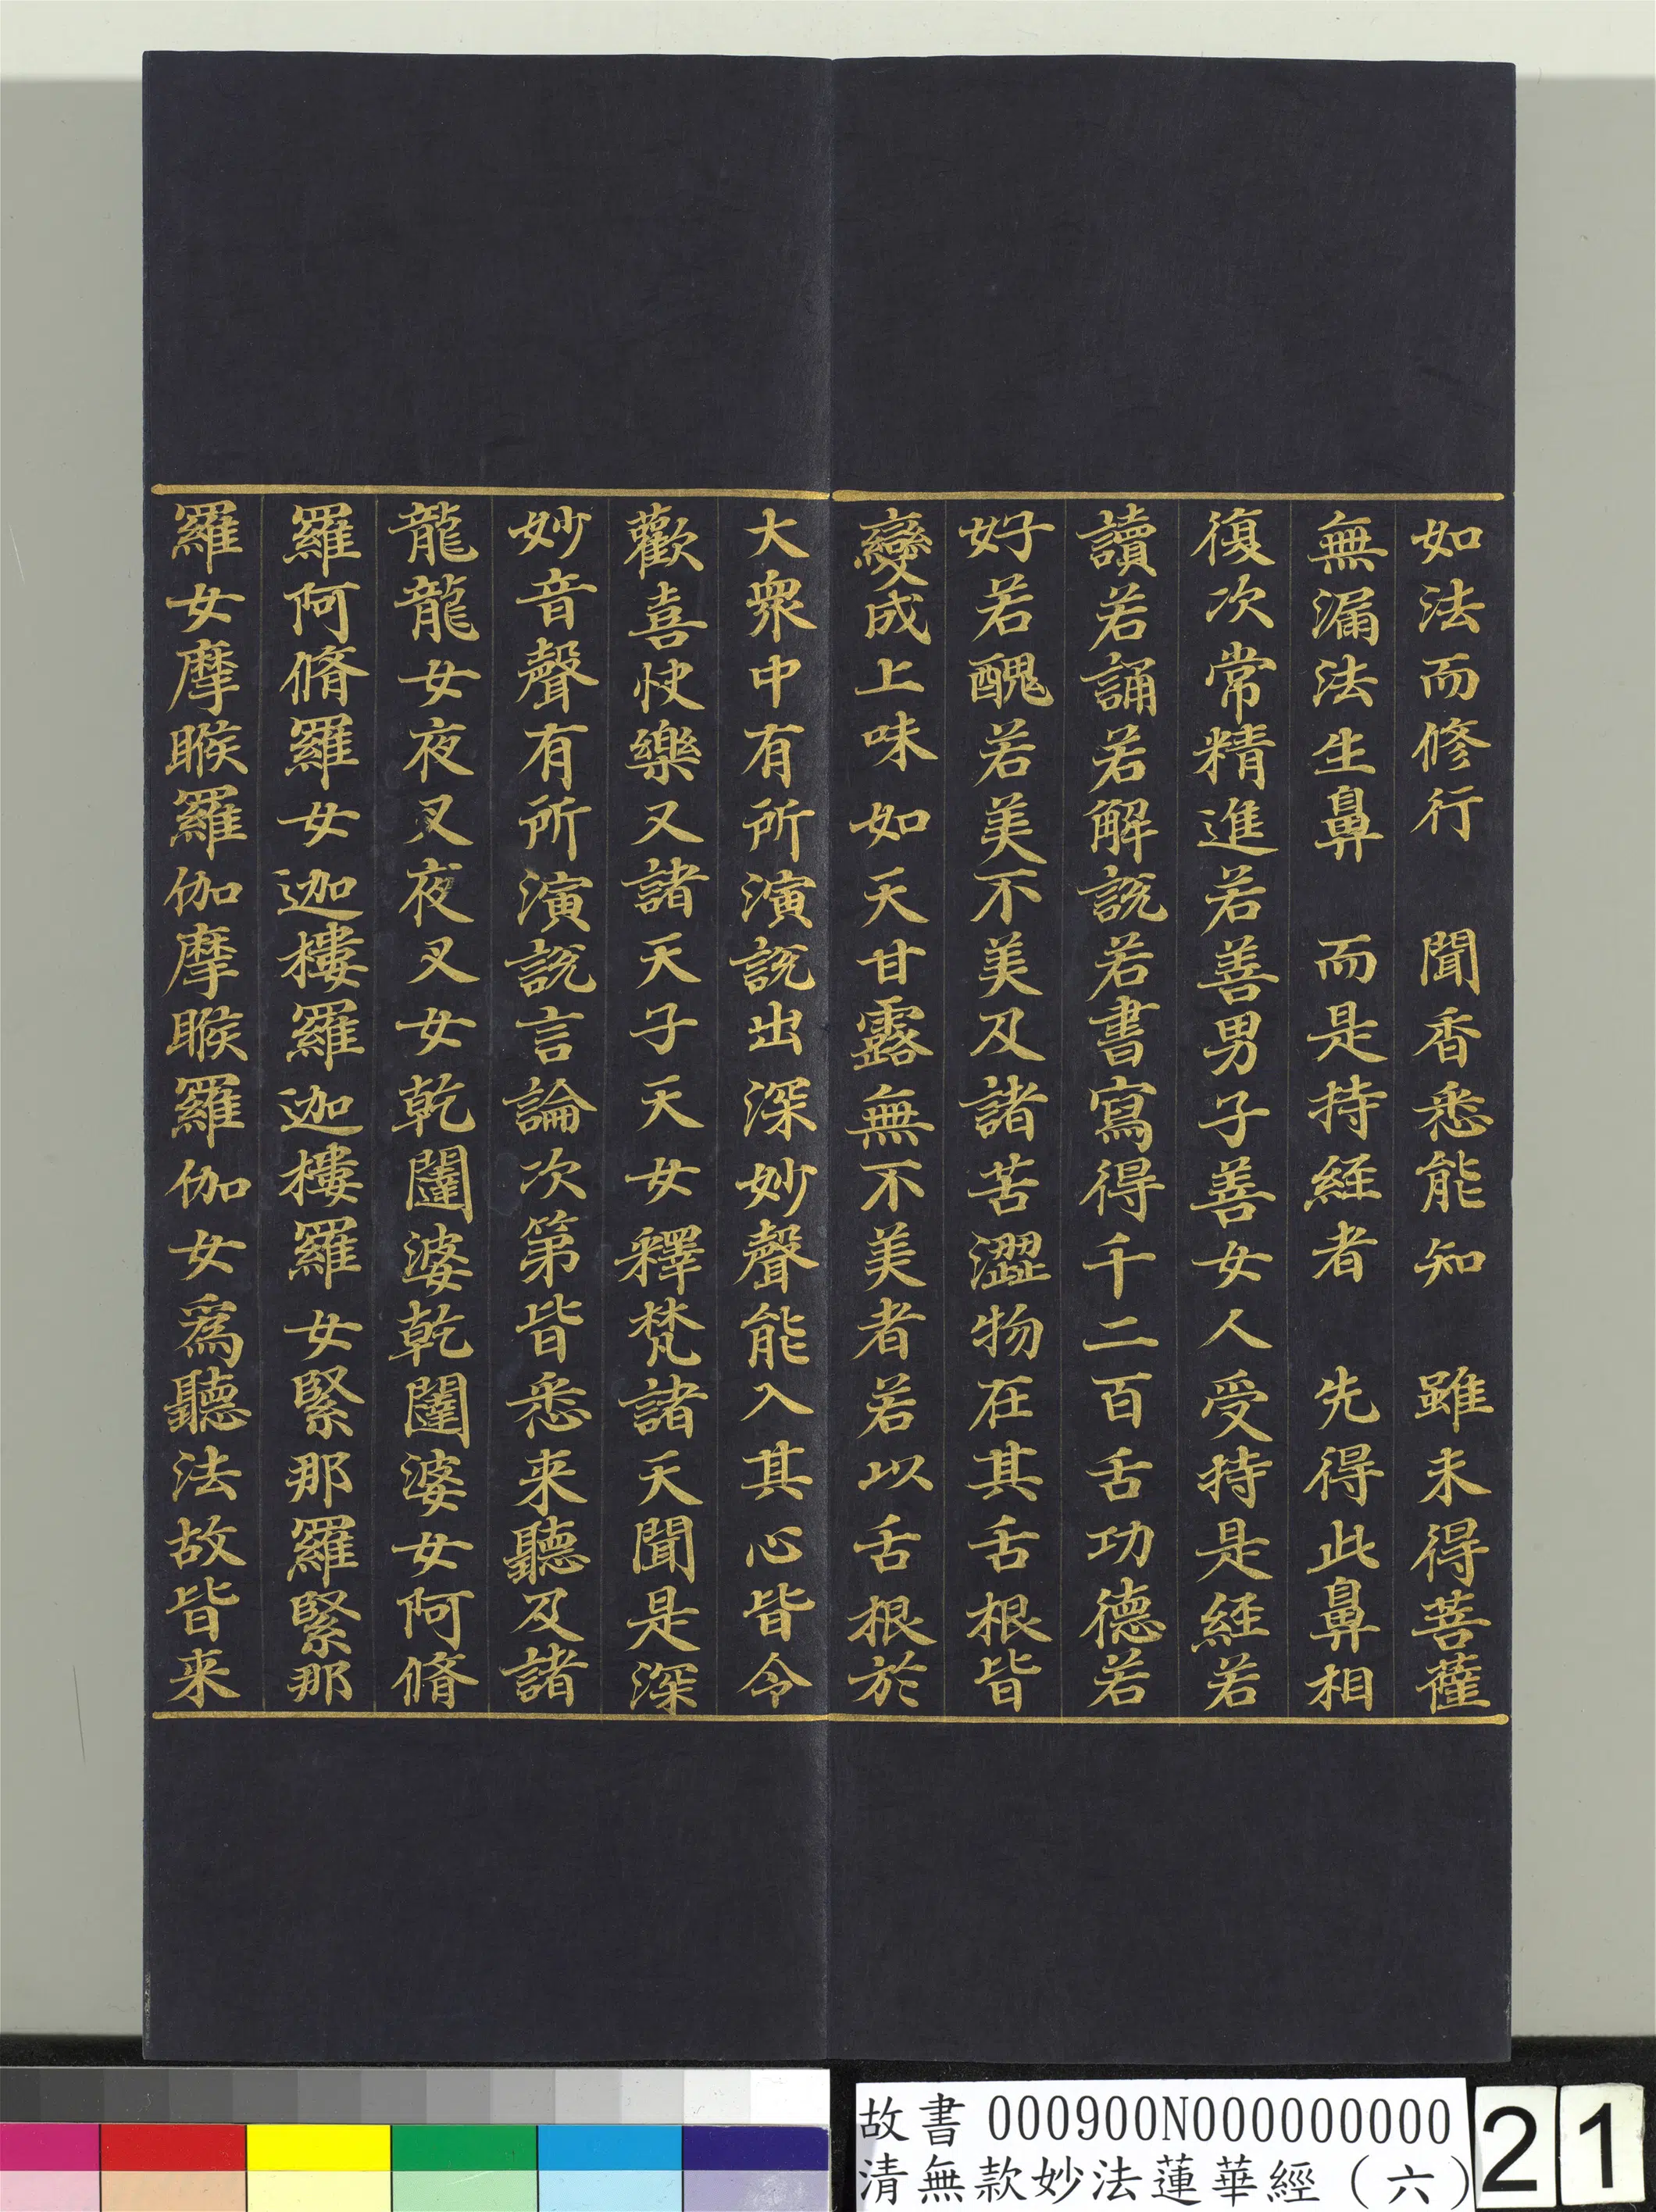 如法而修行　聞香悉能知　雖未得菩薩
無漏法生鼻　而是持經者　先得此鼻相
復次常精進若善男子善女人受持是經若
讀若誦若解說若書寫得千二百舌功德若
好若醜若美不美及諸苦澀物在其舌根皆
變成上味如天甘露無不美者若以舌根於
大衆中有所演說出深妙聲能入其心皆令
歡喜快樂又諸天子天女釋梵諸天聞是深
妙音聲有所演說言論次第皆悉来聽及諸
龍龍女夜叉夜叉女乾闥婆乾闥婆女阿脩
羅阿脩羅女迦樓羅迦樓羅女緊那羅緊那
羅女摩睺羅伽摩睺羅伽女爲聽法故皆来
故書 000900N000000000
清無款妙法蓮華經（六）
21